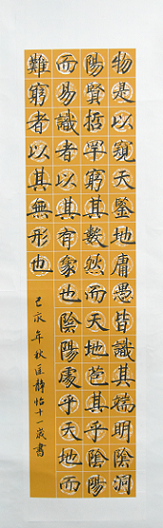 物是以窺天鑒地庸愚皆識其端明陰洞
陽賢哲罕窮其數然而天地苞其乎陰陽
而易識者以其有象也陰陽處乎天地而
難窮者以其無形也
己亥年秋匡靜怡十一歲書